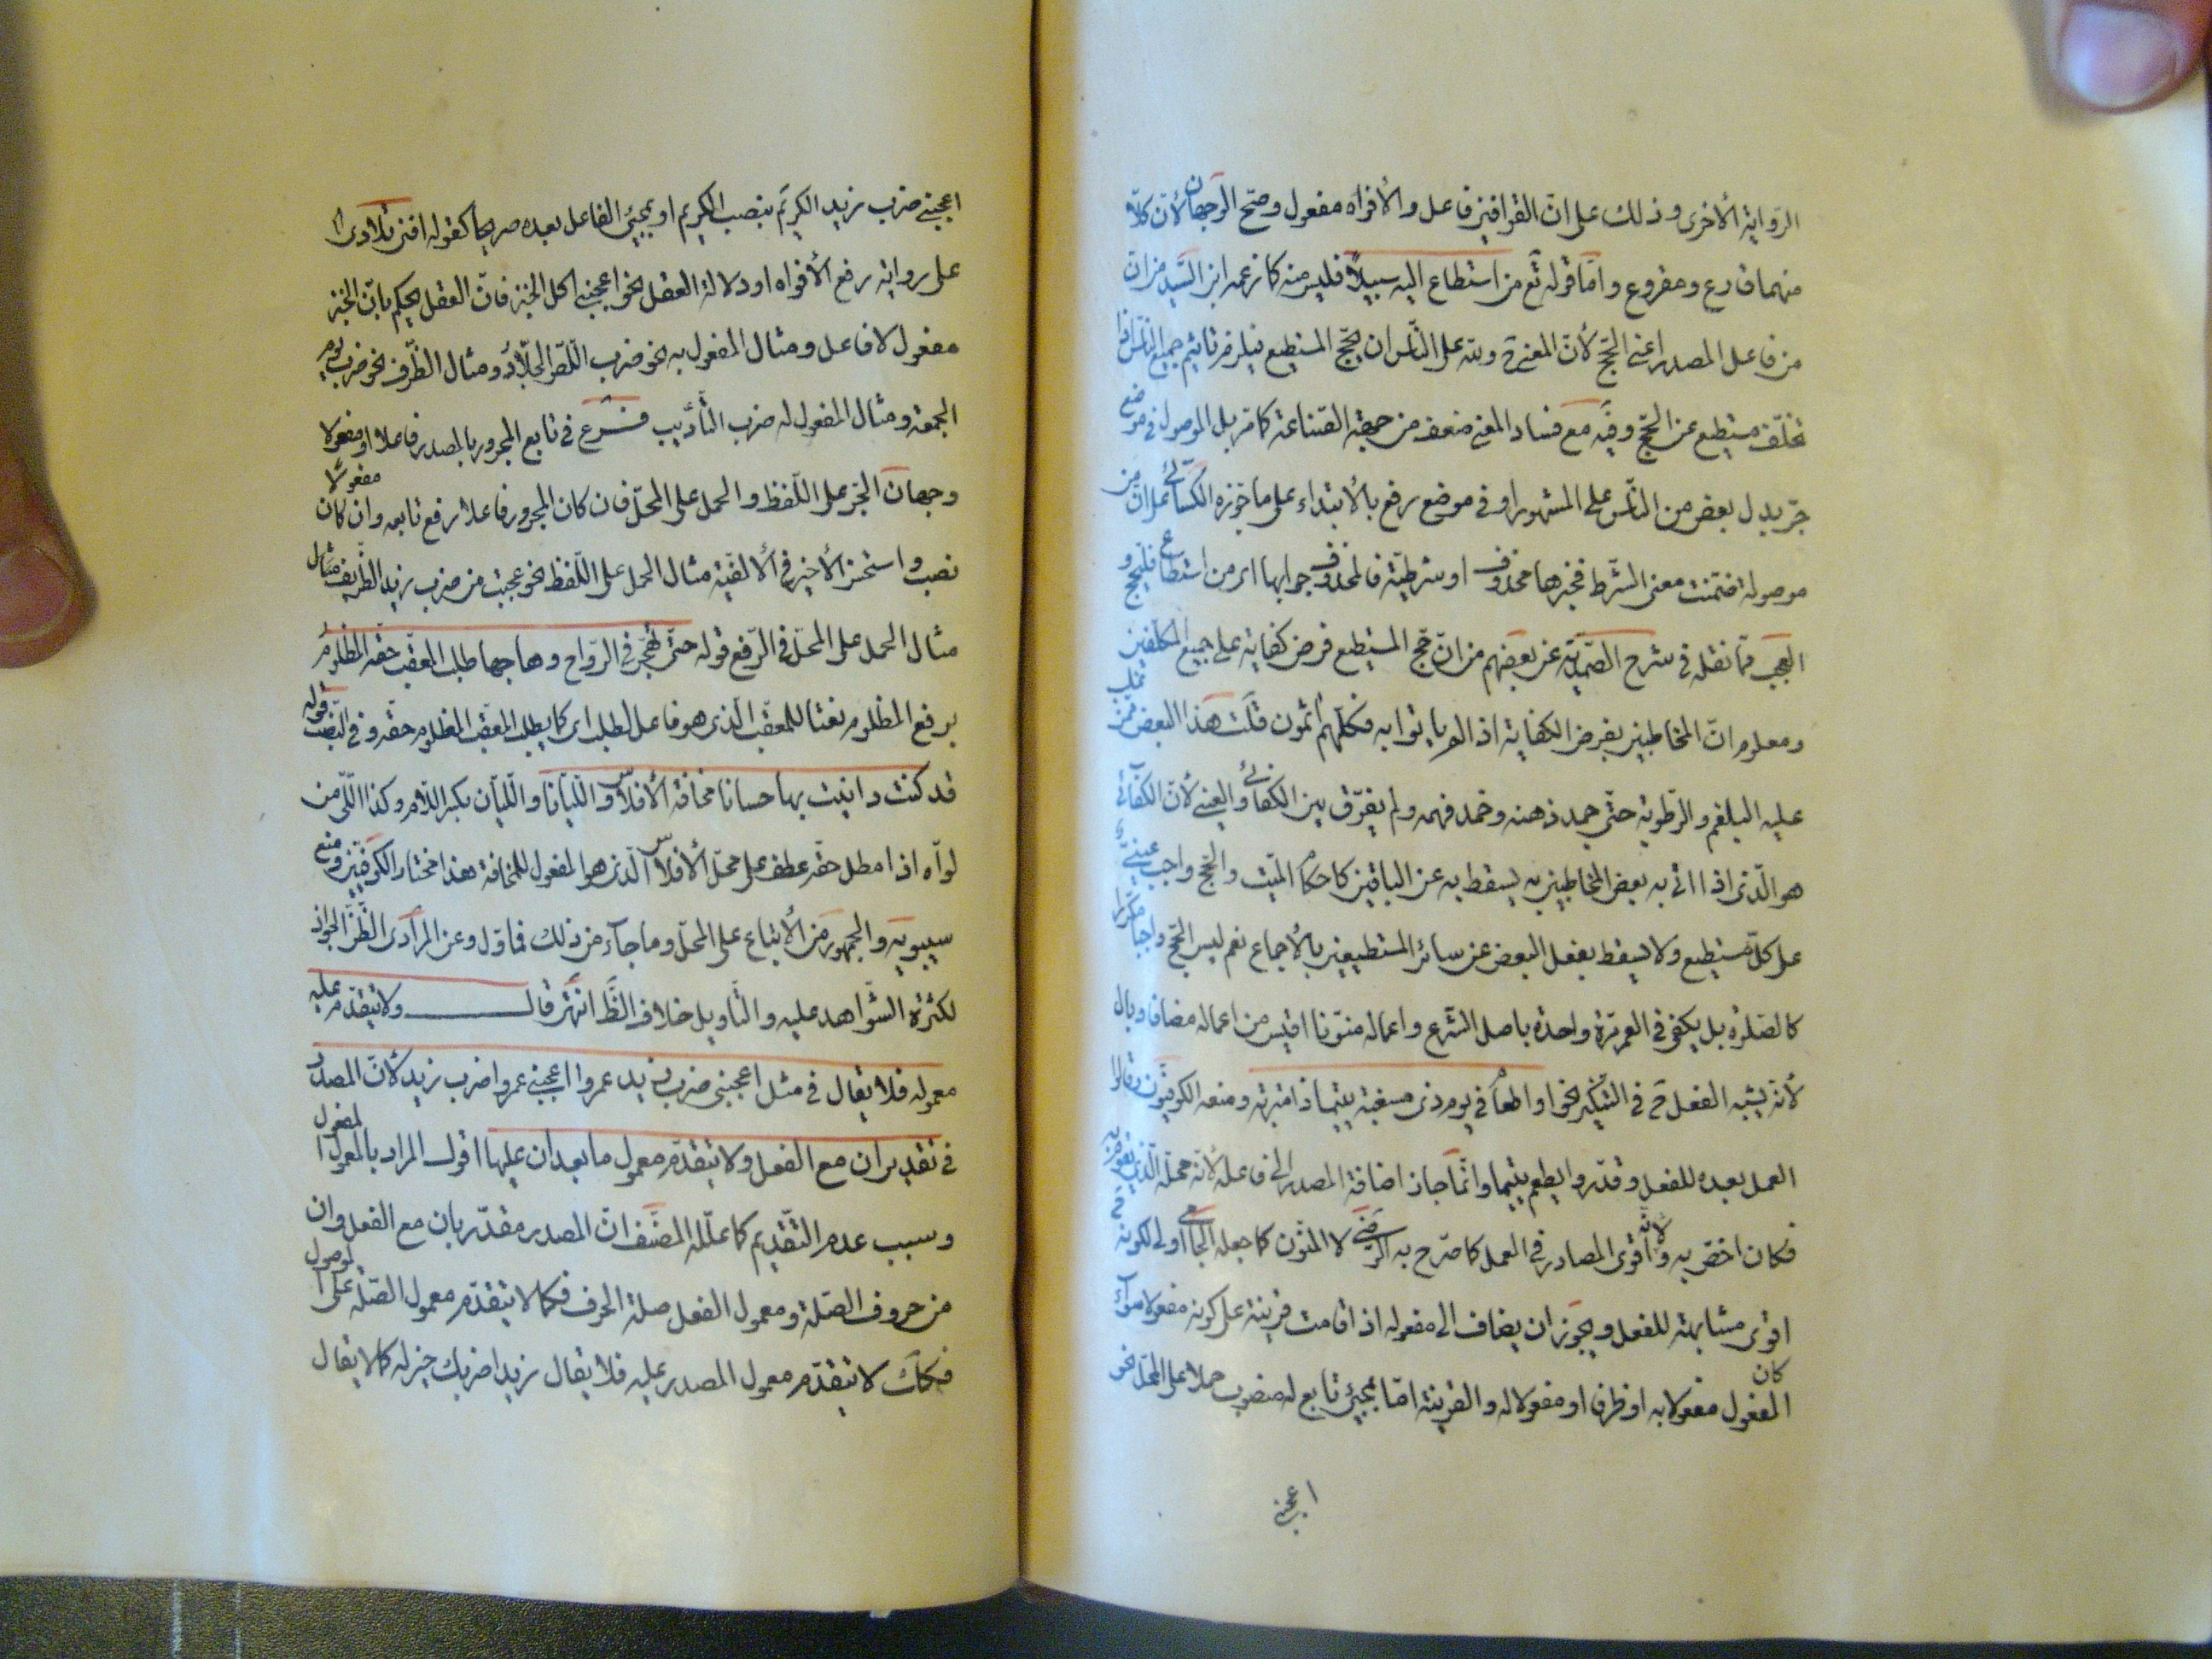 الرّواية الأخرى وذلك على انّ القوافيز فاعل والأفواه مفعول وصحّ الوجهان لأنّ كلّا
منهما قارع ومقروع وامّا قوله تع من استطاع اليه سبيلًا فليس منه كما زعمه ابن السّيد من انّ
من فاعل المصدر اعنى الحجّ لأنّ المعنى ح ولله على النّاس ان يحجّ المستطيع فيلزم تأثيم جميع النّاس اذا
تخلّف مستطيع عن الحجّ وفيه مع فساد المعنى ضعف من جهة الصّناعة كما مرّ بل الموصول فى موضع
جرّ بدل بعض من النّاس على المشهور او فى موضع رفع بالأبتداء على ما جوّزه الكسائىّ على انّ من
موصولة ضمّنت معنى الشّرط فخبرها محذوف او شرطيّة فالمحذوف جوابها اى من استطاع فليحجّ و
العجب ممّا نقله فى شرح الصّمديّة عن بعضهم من انّ حجّ المستطيع فرض كفاية على جميع المكلّفين
ومعلوم انّ المخاطبين بفرض الكفاية اذا لم ياتوا به فكلّهم اثمون قلت هذا البعض ممّن غلب
عليه البلغم والرّطوبة حتّى جمد ذهنه وخمد فهمه ولم يفرّق بين الكفائى والعينى لأنّ الكفائى
هو الّذى اذا اتى به بعض المخاطبين به يسقط به عن الباقين كاحكام الميّت والحجّ واجب عينىّ
على كلّ مستطيع ولا يسقط بفعل البعض عن سائر المستطيعين بالأجماع نعم ليس الحجّ واجبا مكرّرا
كالصّلوة بل يكفى فى العمر مرّة واحدة باصل الشّرع واعماله منوّنا اقيس من اعماله مضافا وبال
لأنّه يشبه الفعل ح فى التّنكير نحو او اطعام فى يوم ذى مسغبة يتيما ذا مقربة ومنعه الكوفيّون وقالوا
العمل بعده للفعل وقدّروا يطعم يتيما وانّما جاز اضافة المصدر الى فاعله لأنّه محلّه الّذى يقوم به
فكان اخصّ به ولأنّه اقوى المصادر فى العمل كما صرّح به الرّضى لا المنوّن كما جعله الجامى اولى لكونه ح
اقوى مشابهة للفعل ويجوز ان يضاف الى مفعوله اذا قامت قرينة على كونه مفعولا سواء
كان المفعول مفعولا به او ظرفا او مفعولا له والقرينة امّا بمجيئ تابع له منصوب حملا على المحلّ نحو
اعجبنى
اعجبنى ضرب زيد الكريم بنصب الكريم او بمجيئ الفاعل بعده صريحا كقوله افنى تلادى ا
على رواية رفع الأفواه او دلالة العقل نحو اعجبنى اكل الخبز فانّ العقل يحكم بانّ الخبز
مفعول لا فاعل ومثال المفعول به نحو ضرب اللّصّ الجلّاد ومثال الظّرف نحو ضرب يوم
الجمعة ومثال المفعول له ضرب التّأديب فرع فى تابع المجرور بالمصدر فاعلا او مفعولا
وجهان الجرّ على اللّفظ والحمل على المحلّ فان كان المجرور فاعلا رفع تابعه وان كان مفعولا
نصب واستحسن الأخير فى الألفيّة مثال الحمل على اللّفظ نحو عجبت من ضرب زيد الظّريف مثال
مثال الحمل على المحلّ فى الرّفع قوله حتّى تهجّر فى الرّواح وهاجها طلب المعقّب حقّه المظلوم
برفع المظلوم نعتا للمعقّب الّذى هو فاعل لطلب اى كما يطلب المعقّب المظلوم حقّه وفى النّصب قوله
قد كنت داينت بها حسانا مخافة الأفلاس واللّيّانا واللّيّان بكسر اللّام وكذا اللّىّ من
لواه اذا مطل حقّه عطف على محلّ الأفلاس الّذى هو المفعول للمخافة هذا مختار الكوفيّين ومنع
سيبويه والجمهور من الأتباع على المحلّ وما جاء من ذلك فماوّل وعن المرادى الظّ الجواز
لكثرة الشّواهد عليه والتّاويل خلاف الظّ انتهى قال ولا يتقدّم عليه
معموله فلا يقال فى مثل اعجبنى ضرب زيد عمروا اعجبنى عمروا ضرب زيد لأنّ المصدر
فى تقدير ان مع الفعل ولا يتقدّم معمول ما بعد ان عليها اقول المراد بالمعمول المفعول
وسبب عدم التّقديم كما علّله المصنّف انّ المصدر مقدّر بان مع الفعل وان
من حروف الصّلة ومعمول الفعل صلة الحرف فكما لا يتقدّم معمول الصّلة على الموصول
فكك لا يتقدّم معمول المصدر عليه فلا يقال زيدا ضربك خير له كما لا يقال